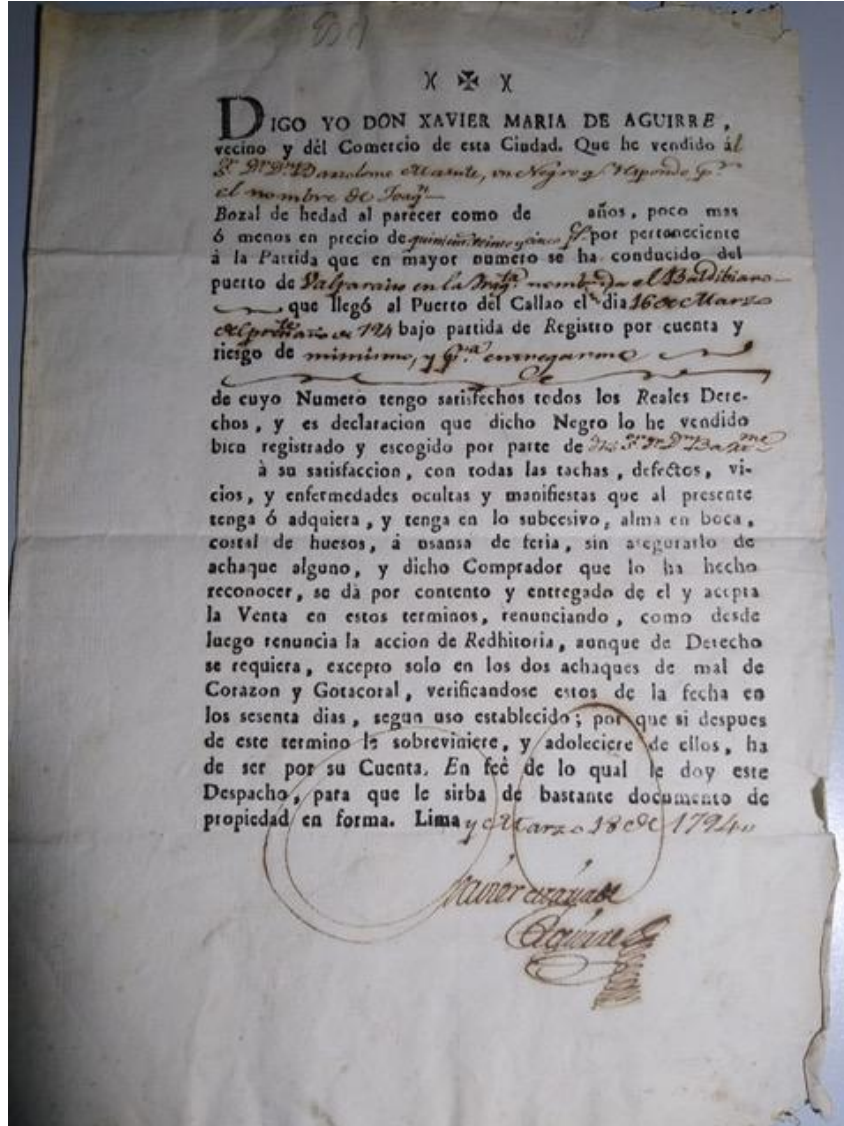 DIGO YO DON XAVIER MARIA DE AGUIRRE,
vecino y dél Comercio de esta Ciudad. Que he vendido ál
Sr. Dr. Dn. Bartolome Matute, un Negro q. responde pr.
el nombre de Joaqn.
Bozal de hedad al parecer como de años, poco mas
ó menos en precio de quinientos treinta y cinco ps. por perteneciente
á la Partida que en mayor numero se ha conducido del
puerto de Valparaiso en la Fragta. nombrada el Baldibiano
que llegó al Puerto del Callao el dia 16 de Marzo
del preste. año de 794 bajo partida de Registro por cuenta y
riesgo de mi mismo, y pa. entregarme
de cuyo Numero tengo satisfechos todos los Reales Dere-
chos, y es declaracion que dicho Negro lo he vendido
bien registrado y escogido por parte de dho Sr. Dr. Dn. Barme.
à su satisfaccion, con todas las tachas, defectos, vi-
cios, y enfermedades ocultas y manifiestas que al presente
tenga ó adquiera, y tenga en lo subcesivo, alma en boca,
costal de huesos, á usansa de feria, sin asegurarlo de
achaque alguno, y dicho Comprador que lo ha hecho
reconocer, se dà por contento y entregado de el y acepta
la Venta en estos terminos, renunciando, como desde
luego renuncia la accion de Redhitoria, aunque de Derecho
se requiera, excepto solo en los dos achaques de mal de
Corazon y Gotacoral, verificandose estos de la fecha en
los sesenta dias, segun uso establecido; por que si despues
de este termino le sobreviniere, y adoleciere de ellos, ha
de ser por su Cuenta. En feè de lo qual le doy este
Despacho, para que le sirba de bastante documento de
propiedad en forma. Lima y Marzo 18 de 1794
Xavier Maria de
Aguirre